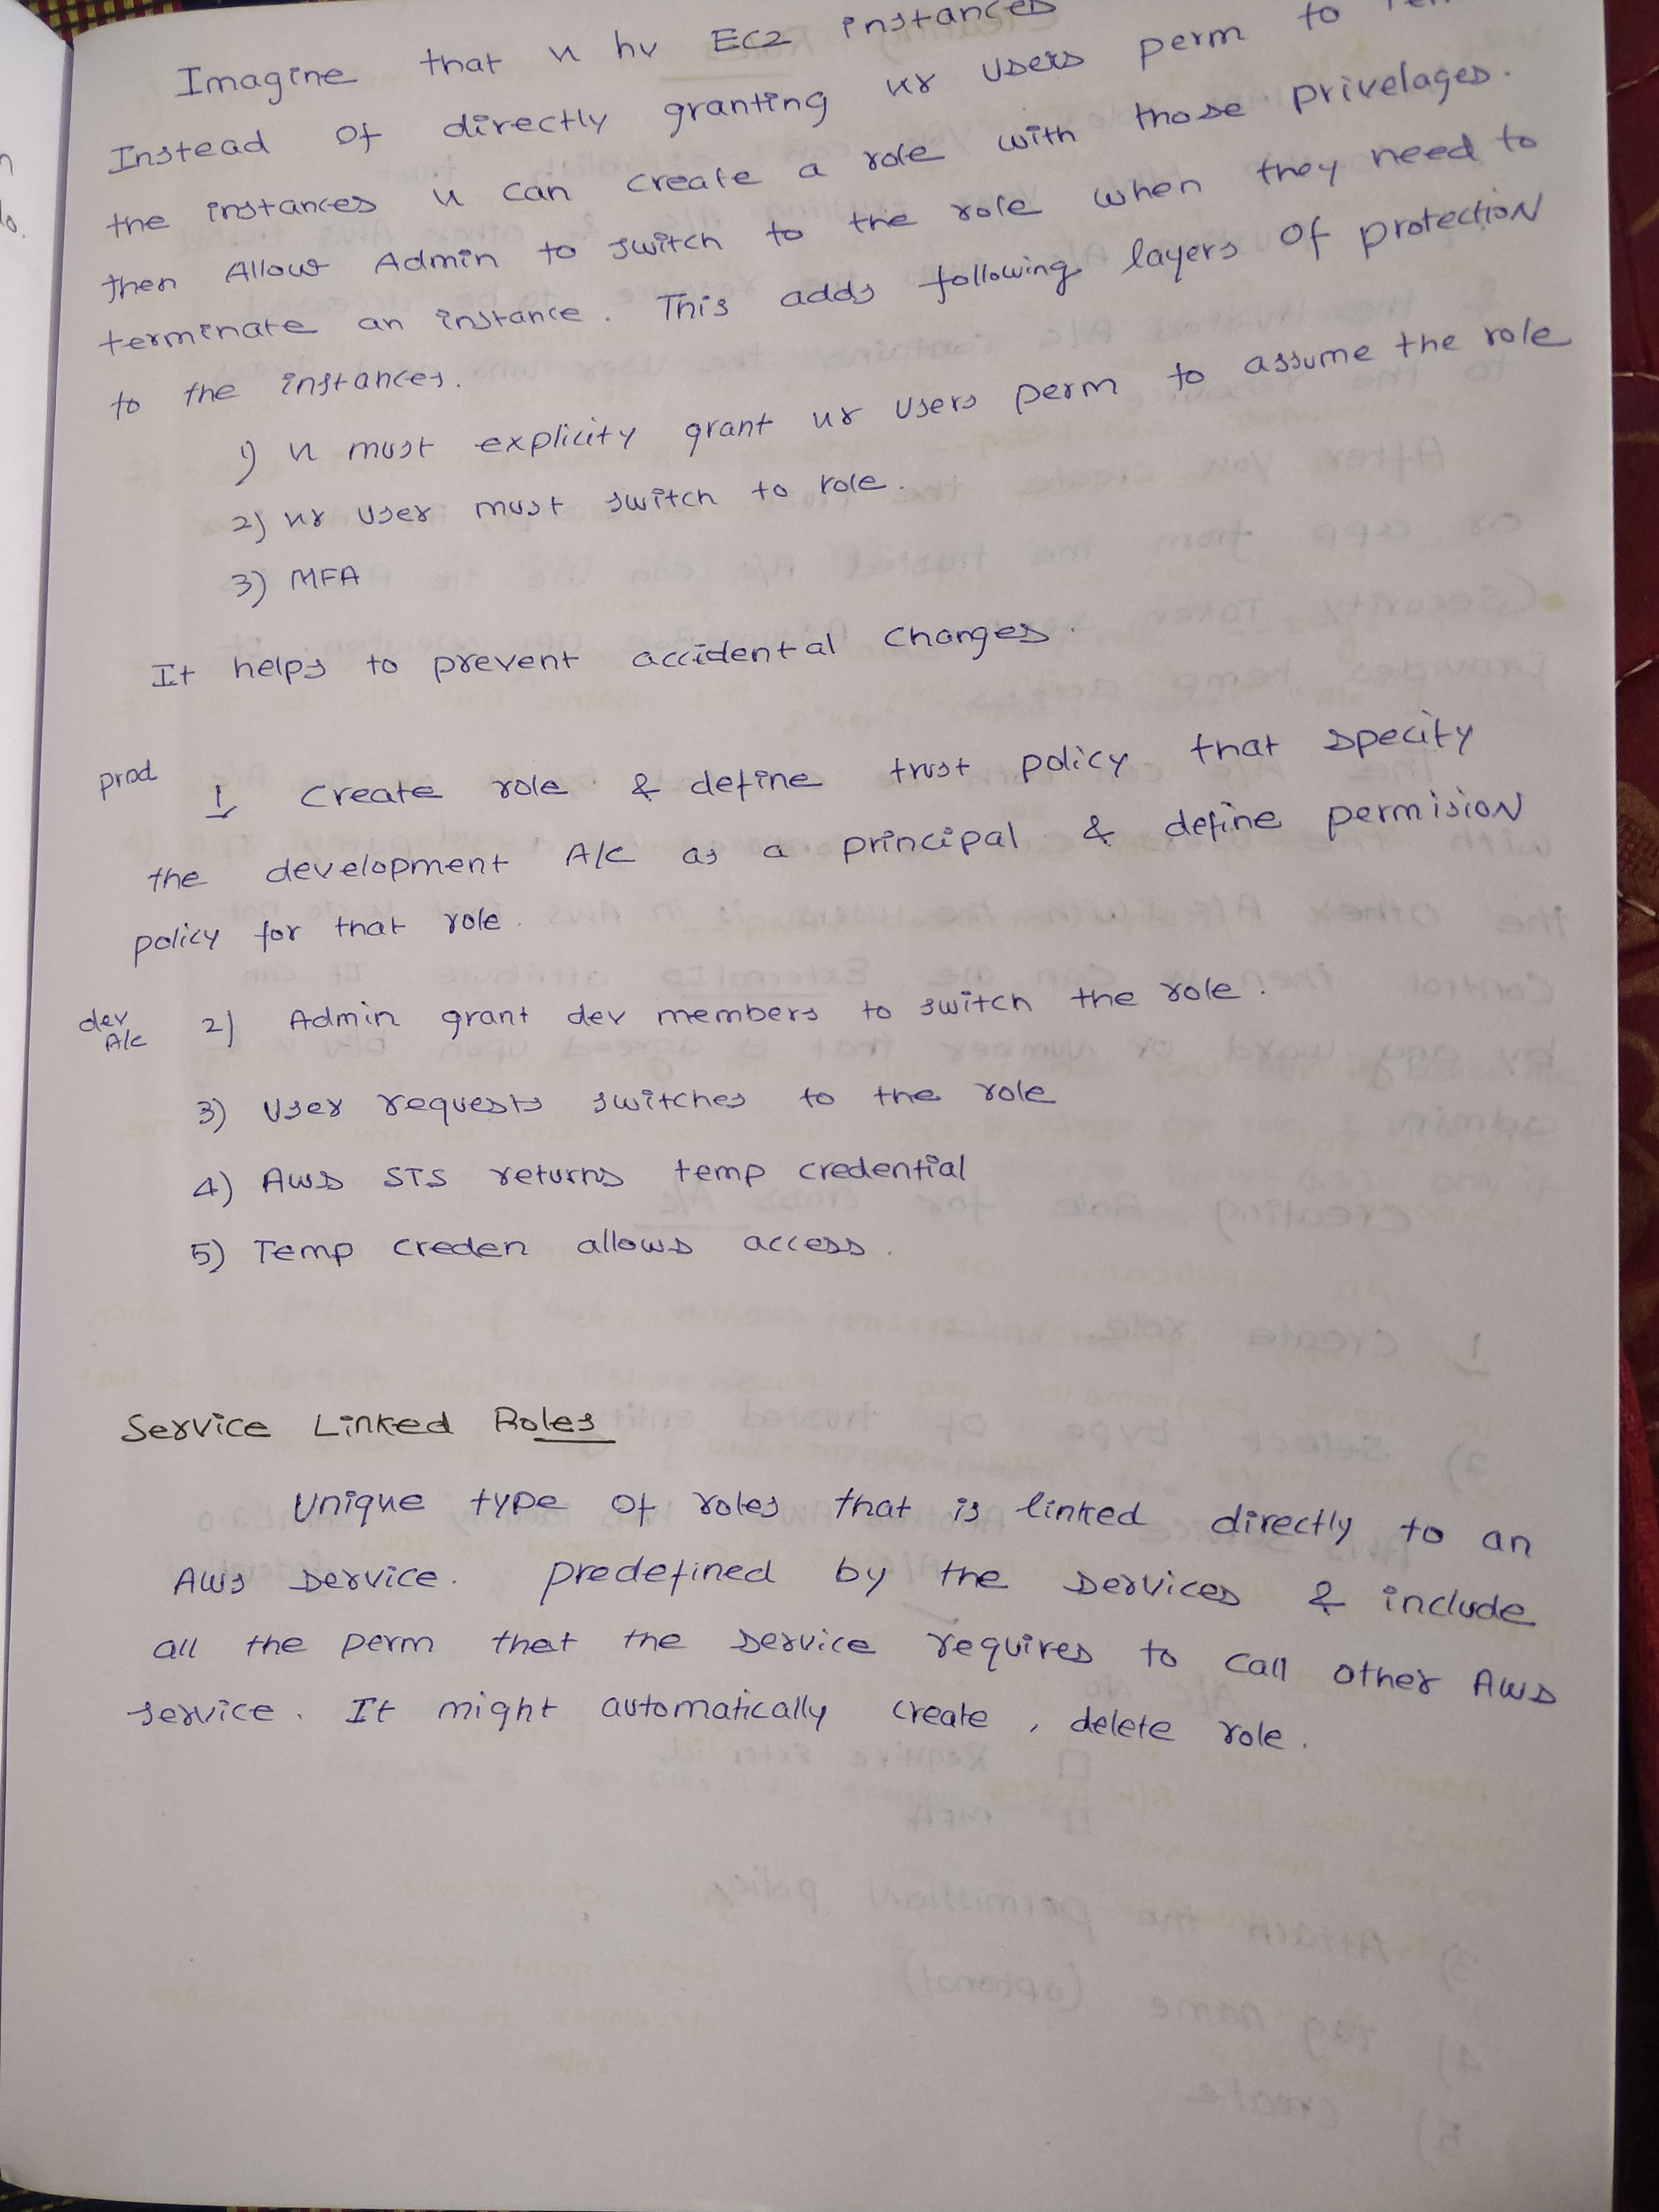 Imagine that u hv EC2 instances
Instead of directly granting ur users perm to
the instances u can create a role with those privelages.
then Allow Admin to switch to the role when they need to
terminate an instance. This adds following layers of protection
to the instances.
1) u must explicity grant ur users perm to assume the role
2) ur user must switch to role.
3) MFA
It helps to prevent accidental changes.
prod 1 Create role & define trust policy that specity
the development A/C as a principal & define permision
policy for that role.
dev A/c 2) Admin grant dev members to switch the role.
3) User requests switches to the role
4) AWS STS returns temp credential
5) Temp creden allows access.
Service Linked Roles
Unique type of roles that is linked directly to an
AWS service. predefined by the services & include
all the perm that the service requires to call other AWS
service. It might automatically create, delete role.